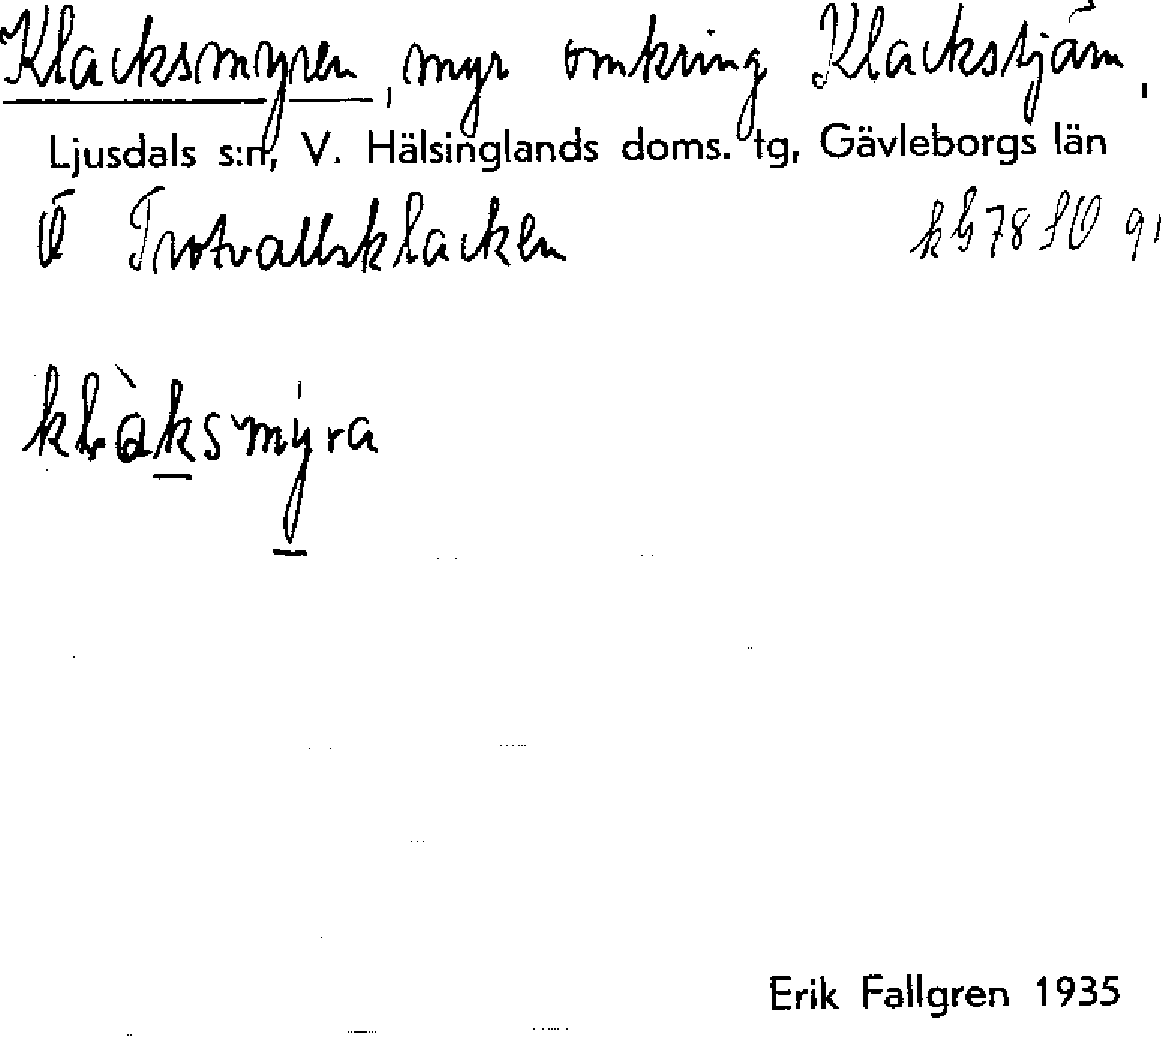 Klacksmyren, myr omkring Klackstjärn,
Ljusdals s:n, V. Hälsinglands doms. tg, Gävleborgs län
Ö Trotvallsklacken
klàksmýra
Erik Fallgren 1935